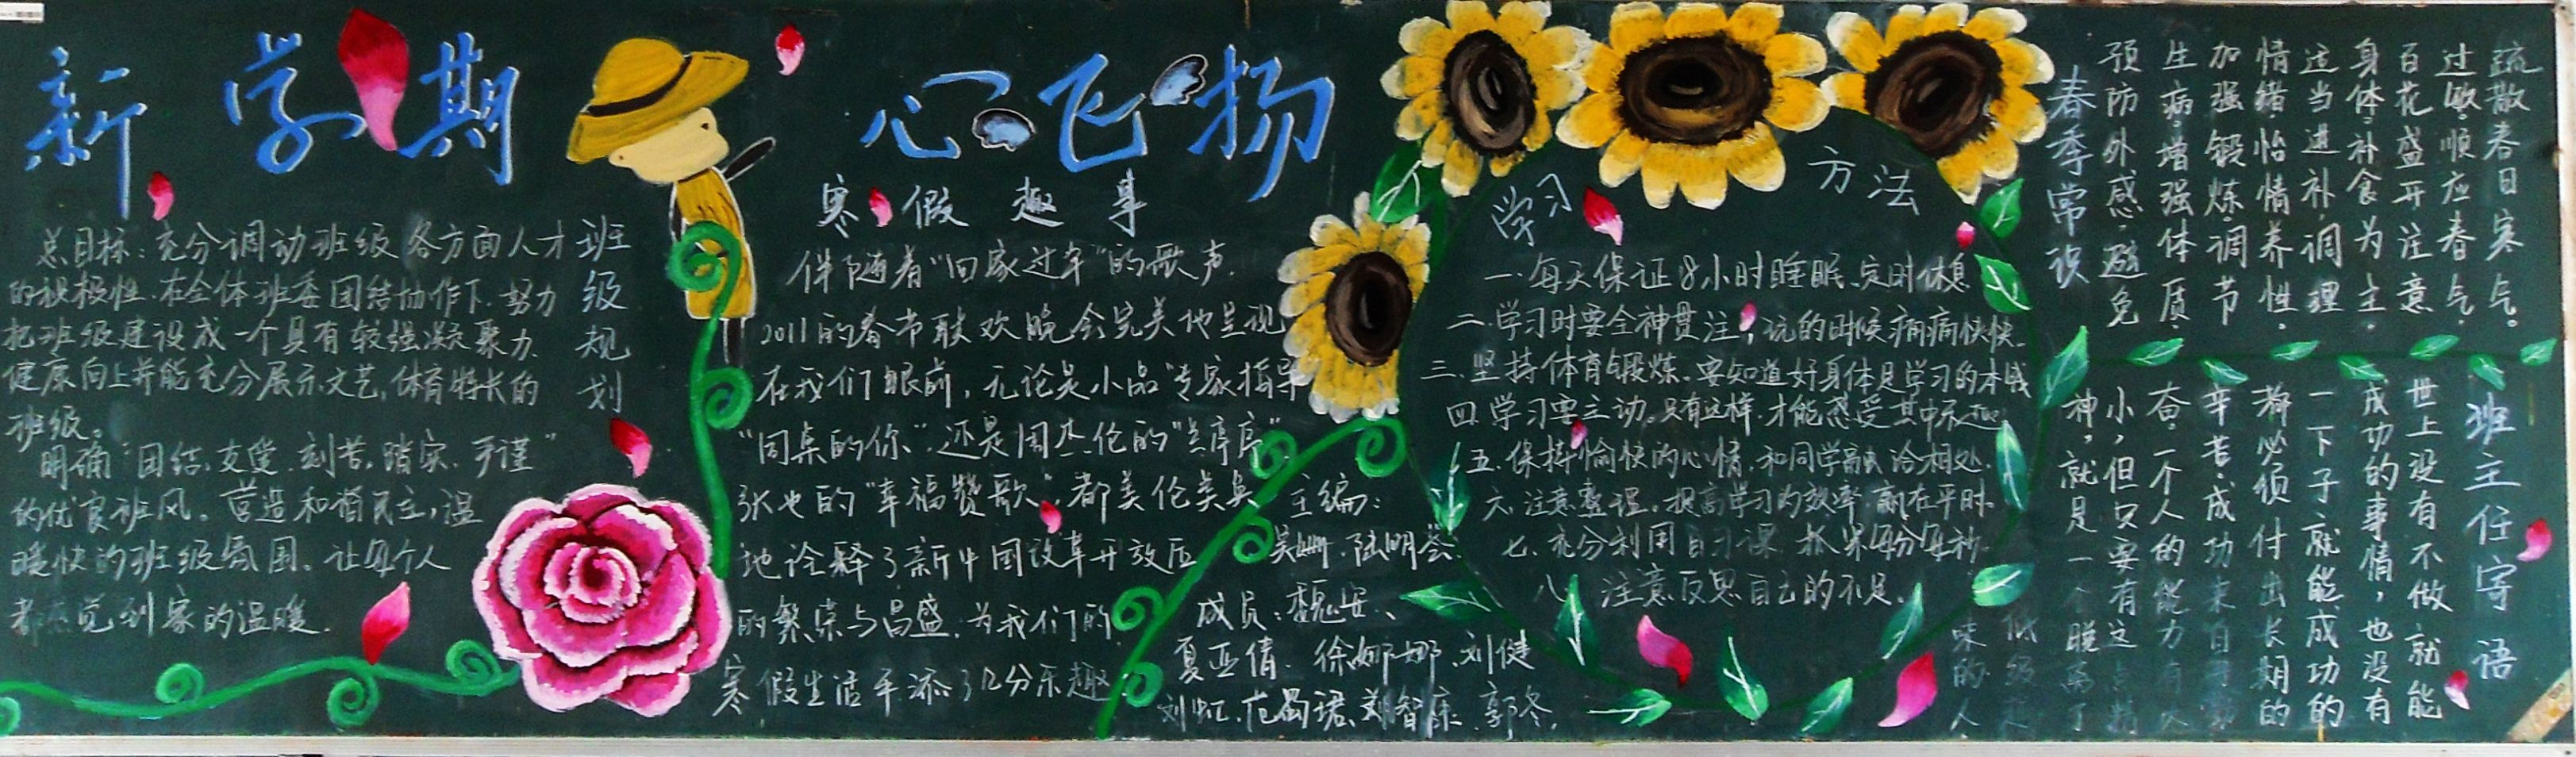 新学期 心飞扬
班级规划
总目标：充分调动班级各方面人才
的积极性.在全体班委团结协作下.努力
把班级建设成一个具有较强凝聚力、
健康向上并能充分展示文艺,体育特长的
班级。
明确“团结、友爱、刻苦、踏实、严谨”
的优良班风。营造和谐民主，温
暖快的班级氛围。让每个人
都感觉到家的温暖.
寒假趣事
伴随着“回家过年”的歌声.
2011的春节联欢晚会完美地呈现
在我们眼前，无论是小品“专家指导”
“同桌的你”.还是周杰伦的“兰亭序”
张也的“幸福赞歌”，都美伦美奂
地诠释了新中国改革开放后
的繁荣与昌盛.为我们的
寒假生活平添了几分乐趣
主编：
吴姗.陆明
成员：魏安、
夏亚倩.徐娜娜.刘健
刘虹.范 珺.刘智 .郭冬.
学习方法
一.每天保证8小时睡眠.定时休息
二.学习时要全神贯注，玩的时候痛痛快快.
三.坚持体育锻炼.要知道好身体是学习的本钱
四.学习要主动.只有这样.才能感受其中乐趣
五.保持愉快的心情.和同学融洽相处.
六.注意整理.提高学习的效率.赢在平时.
七.充分利用自习课.抓紧每分每秒.
八.注意反思自己的不足.
疏散春日寒气。
过敏.顺应春气.
百花盛开注意
身体.补食为主.
适当进补.调理
情绪.怡情养性.
加强锻炼.调节
生病.增强体质.
预防外感.避免
春季常识
班主任寄语
世上没有不做就能
成功的事情，也没有
一下子就能成功的
都必须付出长期的
辛苦.成功来自
奋.一个人的能力有大
小，但只要有这点精
神，就是一个脱离了
低级
味的人